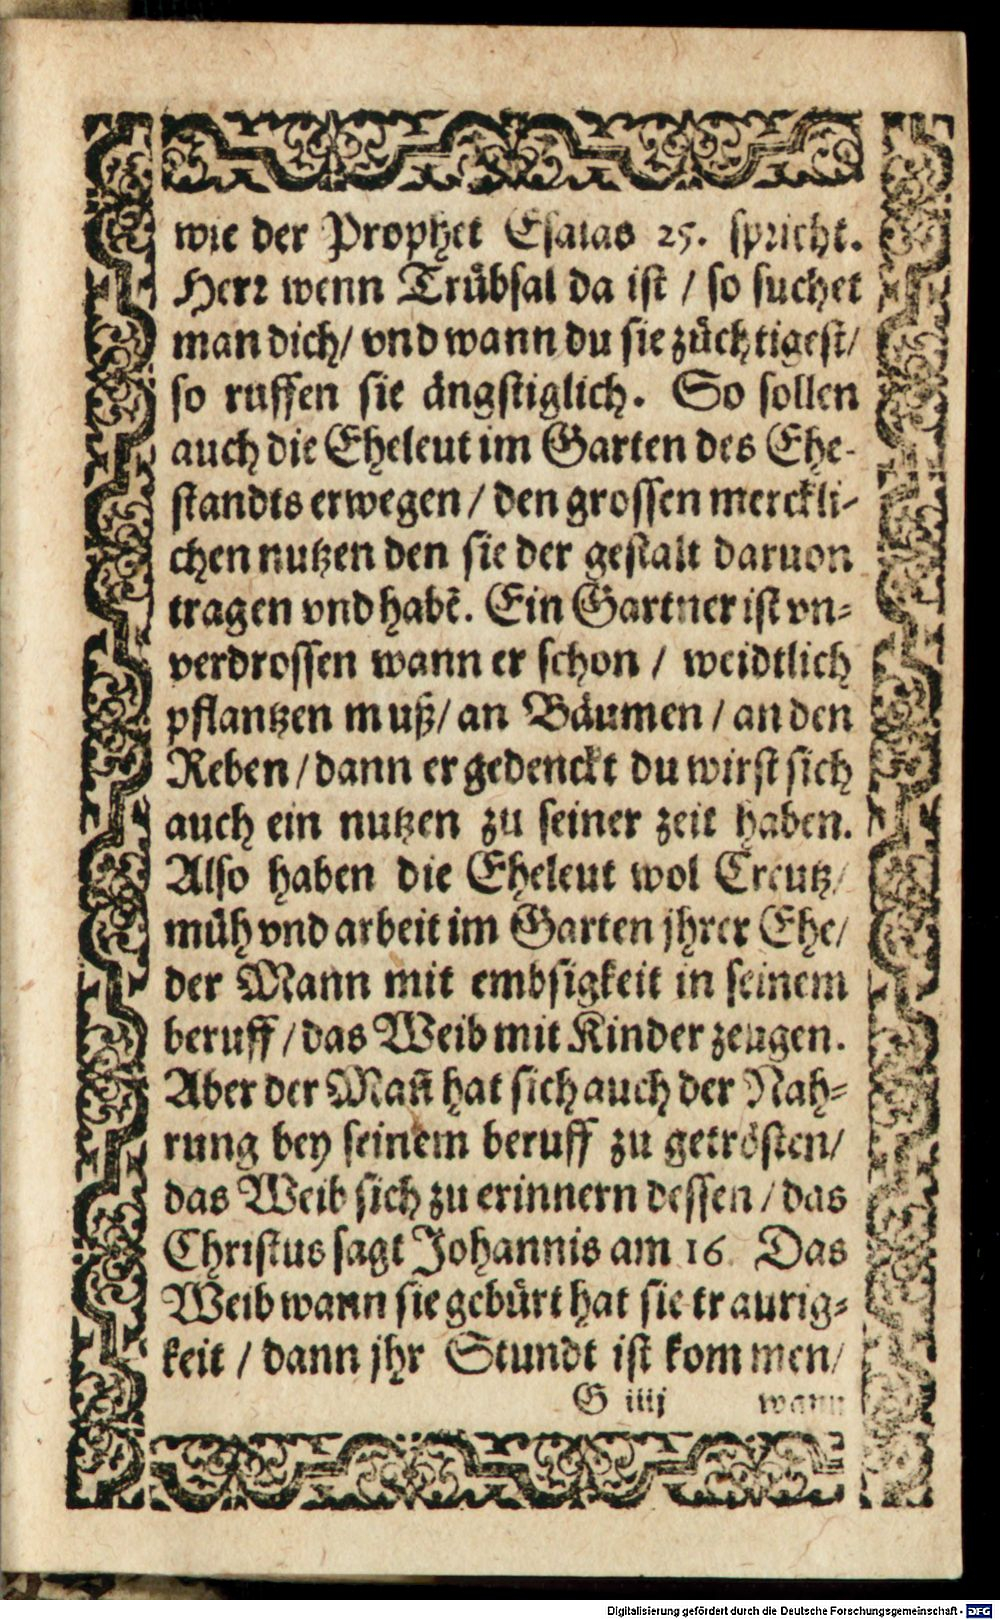 wie der Prophet Esaias 25. spricht.
Herr wenn Trübsal da ist / so suchet
man dich / vnd wann du sie züchtigest /
so ruffen sie ängstiglich. So sollen
auch die Eheleut im Garten des Ehe-
standts erwegen / den grossen merckli-
chen nutzen den sie der gestalt daruon
tragen vnd habẽ. Ein Gartner ist vn-
verdrossen wann er schon / weidtlich
pflantzen muß / an Bäumen / an den
Reben / dann er gedenckt du wirst sich
auch ein nutzen zu seiner zeit haben.
Also haben die Eheleut wol Creutz /
müh vnd arbeit im Garten jhrer Ehe /
der Mann mit embsigkeit in seinem
beruff / das Weib mit Kinder zeugen.
Aber der Mañ hat sich auch der Nah-
rung bey seinem beruff zu getrösten /
das Weib sich zu erinnern dessen / das
Christus sagt Johannis am 16. Das
Weib wann sie gebürt hat sie traurig-
keit / dann jhr Stundt ist kommen /
G iiij wann
Digitalisierung gefördert durch die Deutsche Forschungsgemeinschaft - DFG